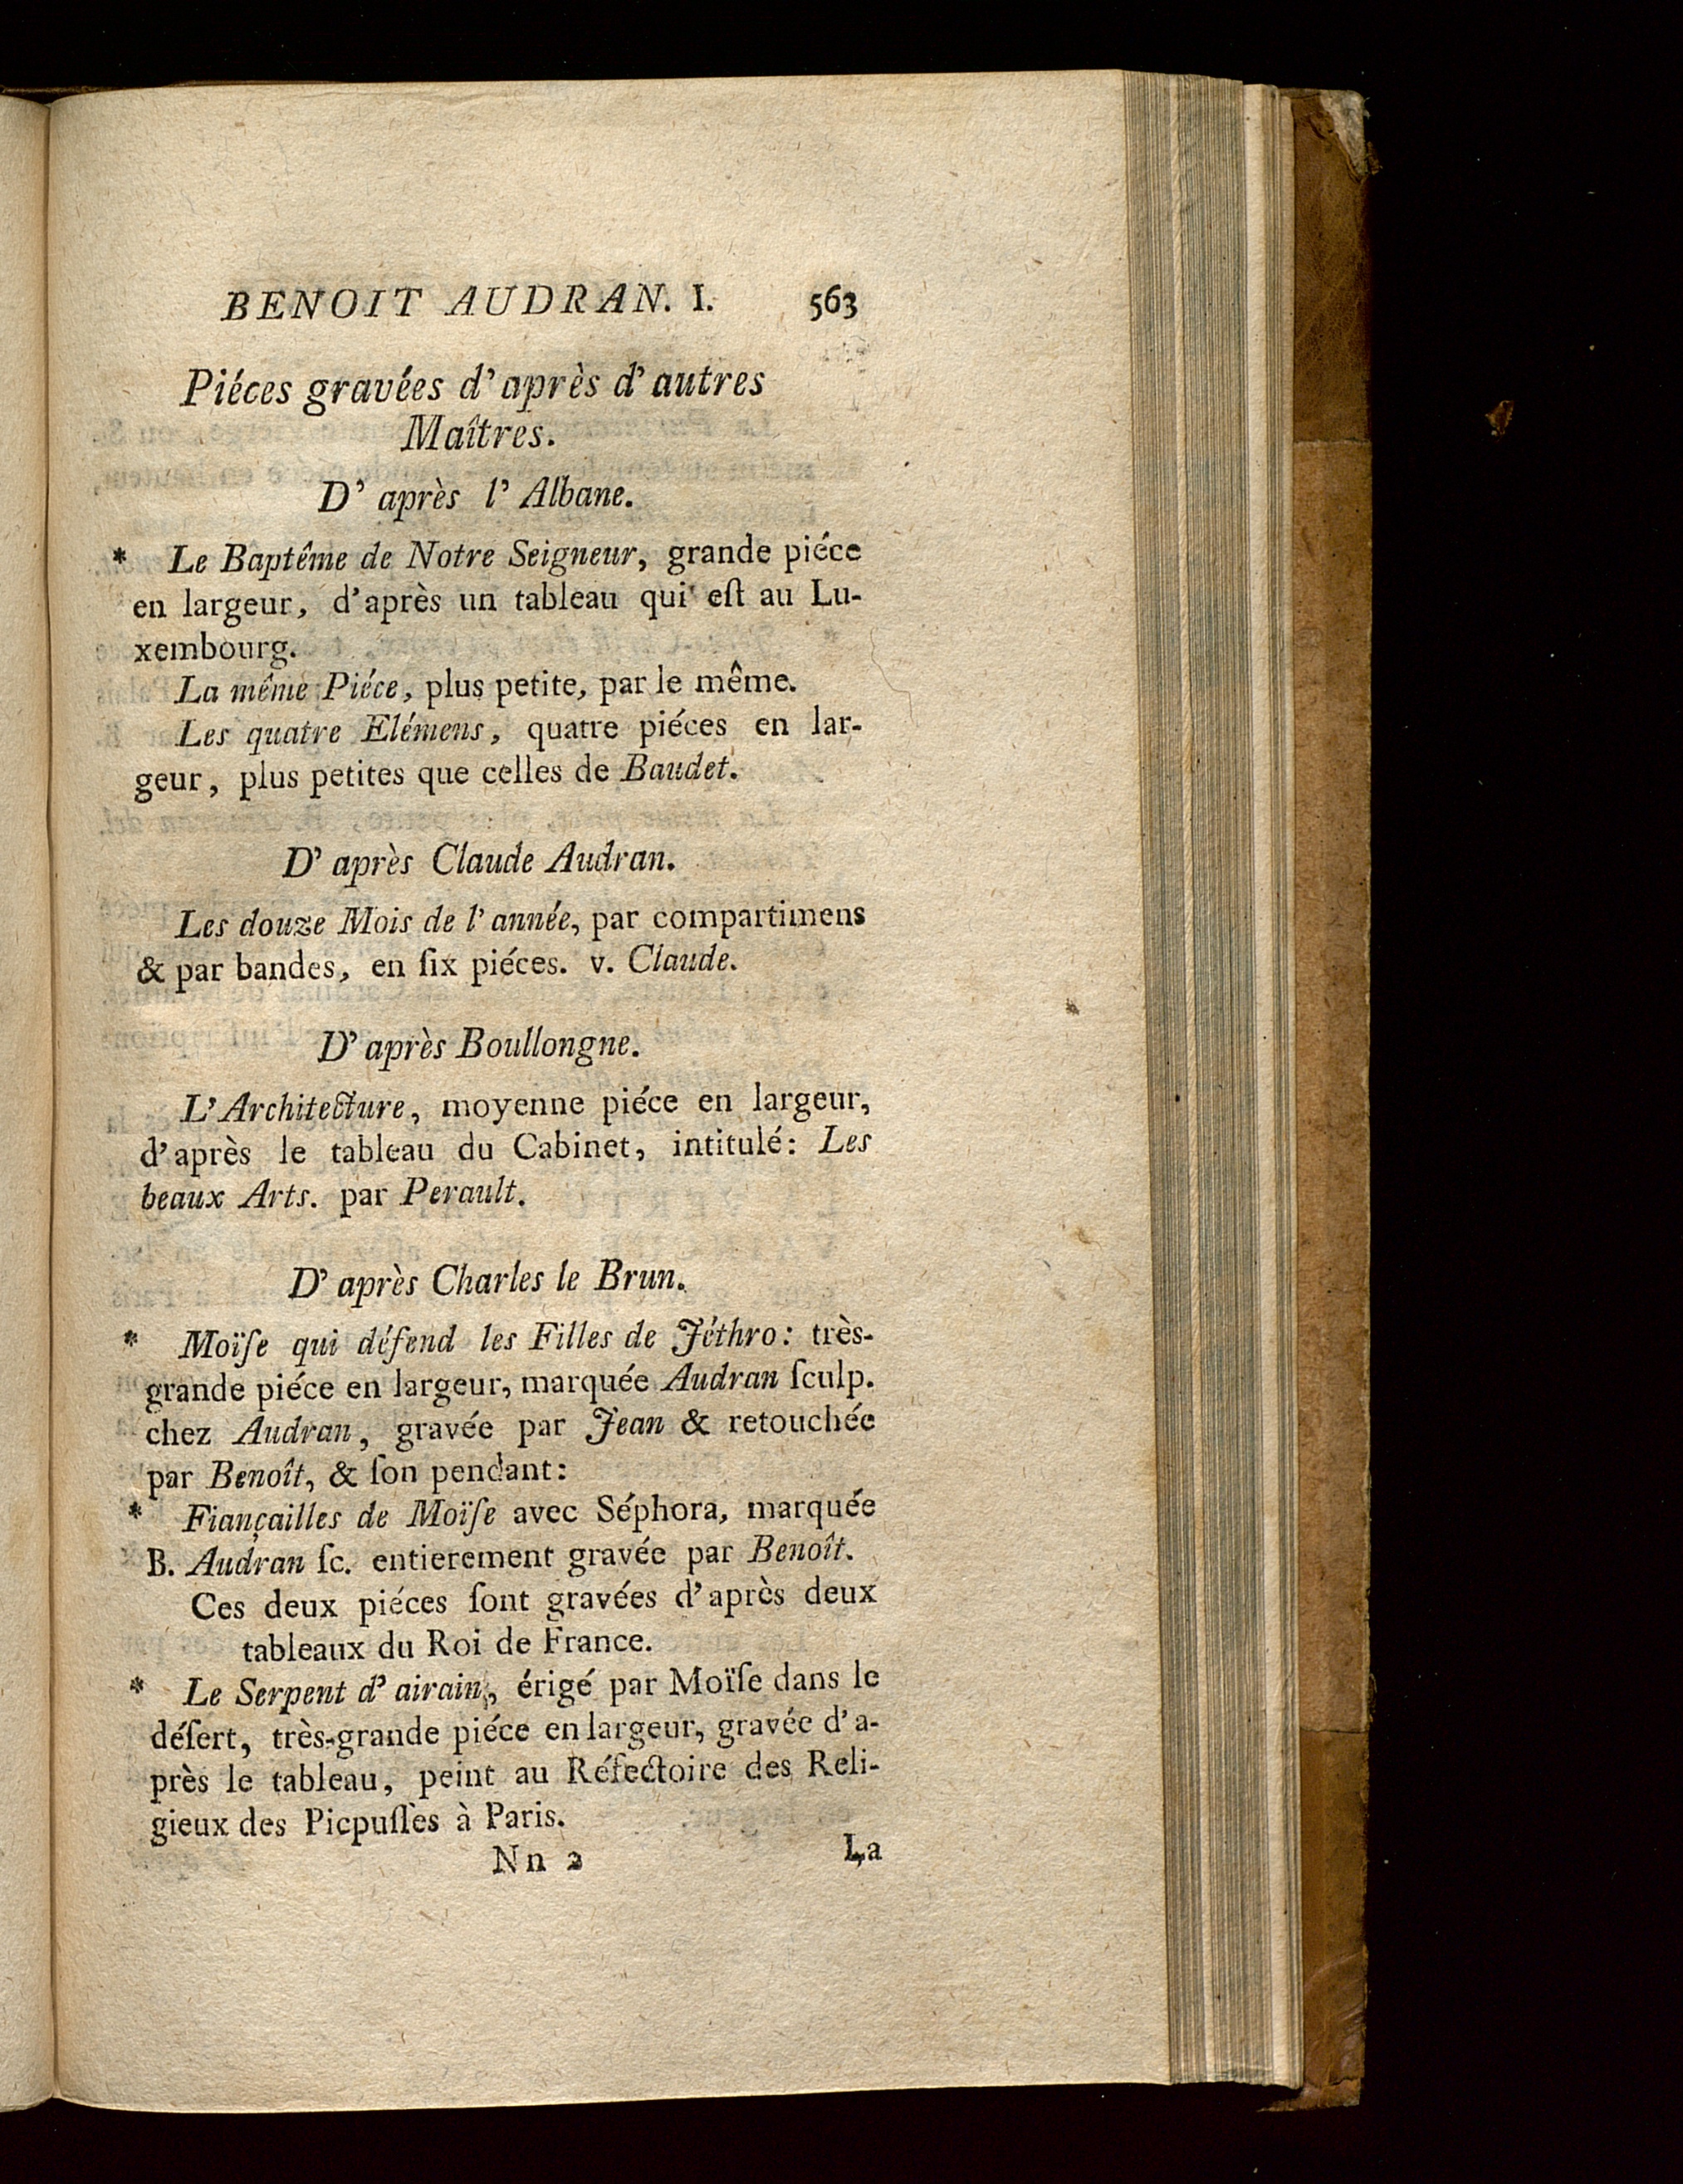 BENOIT AUDRAN. I. 563
Piéces gravées d'après d'autres
Maîtres.
D'après l'Albane.
* Le Baptême de Notre Seigneur, grande piéce
en largeur, d'après un tableau qui est au Lu-
xembourg.
La même Piéce, plus petite, par le même.
Les quatre Elémens, quatre piéces en lar-
geur, plus petites que celles de Baudet.
D'après Claude Audran.
Les douze Mois de l'année, par compartimens
& par bandes, en ſix piéces. v. Claude.
D'après Boullongne.
L'Architecture, moyenne piéce en largeur,
d'après le tableau du Cabinet, intitulé: Les
beaux Arts. par Perault.
D'après Charles le Brun.
* Moïſe qui défend les Filles de Jéthro: très-
grande piéce en largeur, marquée Audran ſculp.
chez Audran, gravée par Jean & retouchée
par Benoît, & ſon pendant:
* Fiançailles de Moïſe avec Séphora, marquée
B. Audran ſc. entierement gravée par Benoît.
Ces deux piéces ſont gravées d'après deux
tableaux du Roi de France.
* Le Serpent d'airain, érigé par Moïſe dans le
déſert, très-grande piéce en largeur, gravée d'a-
près le tableau, peint au Réfectoire des Reli-
gieux des Picpuſſes à Paris.
Nn 2 La